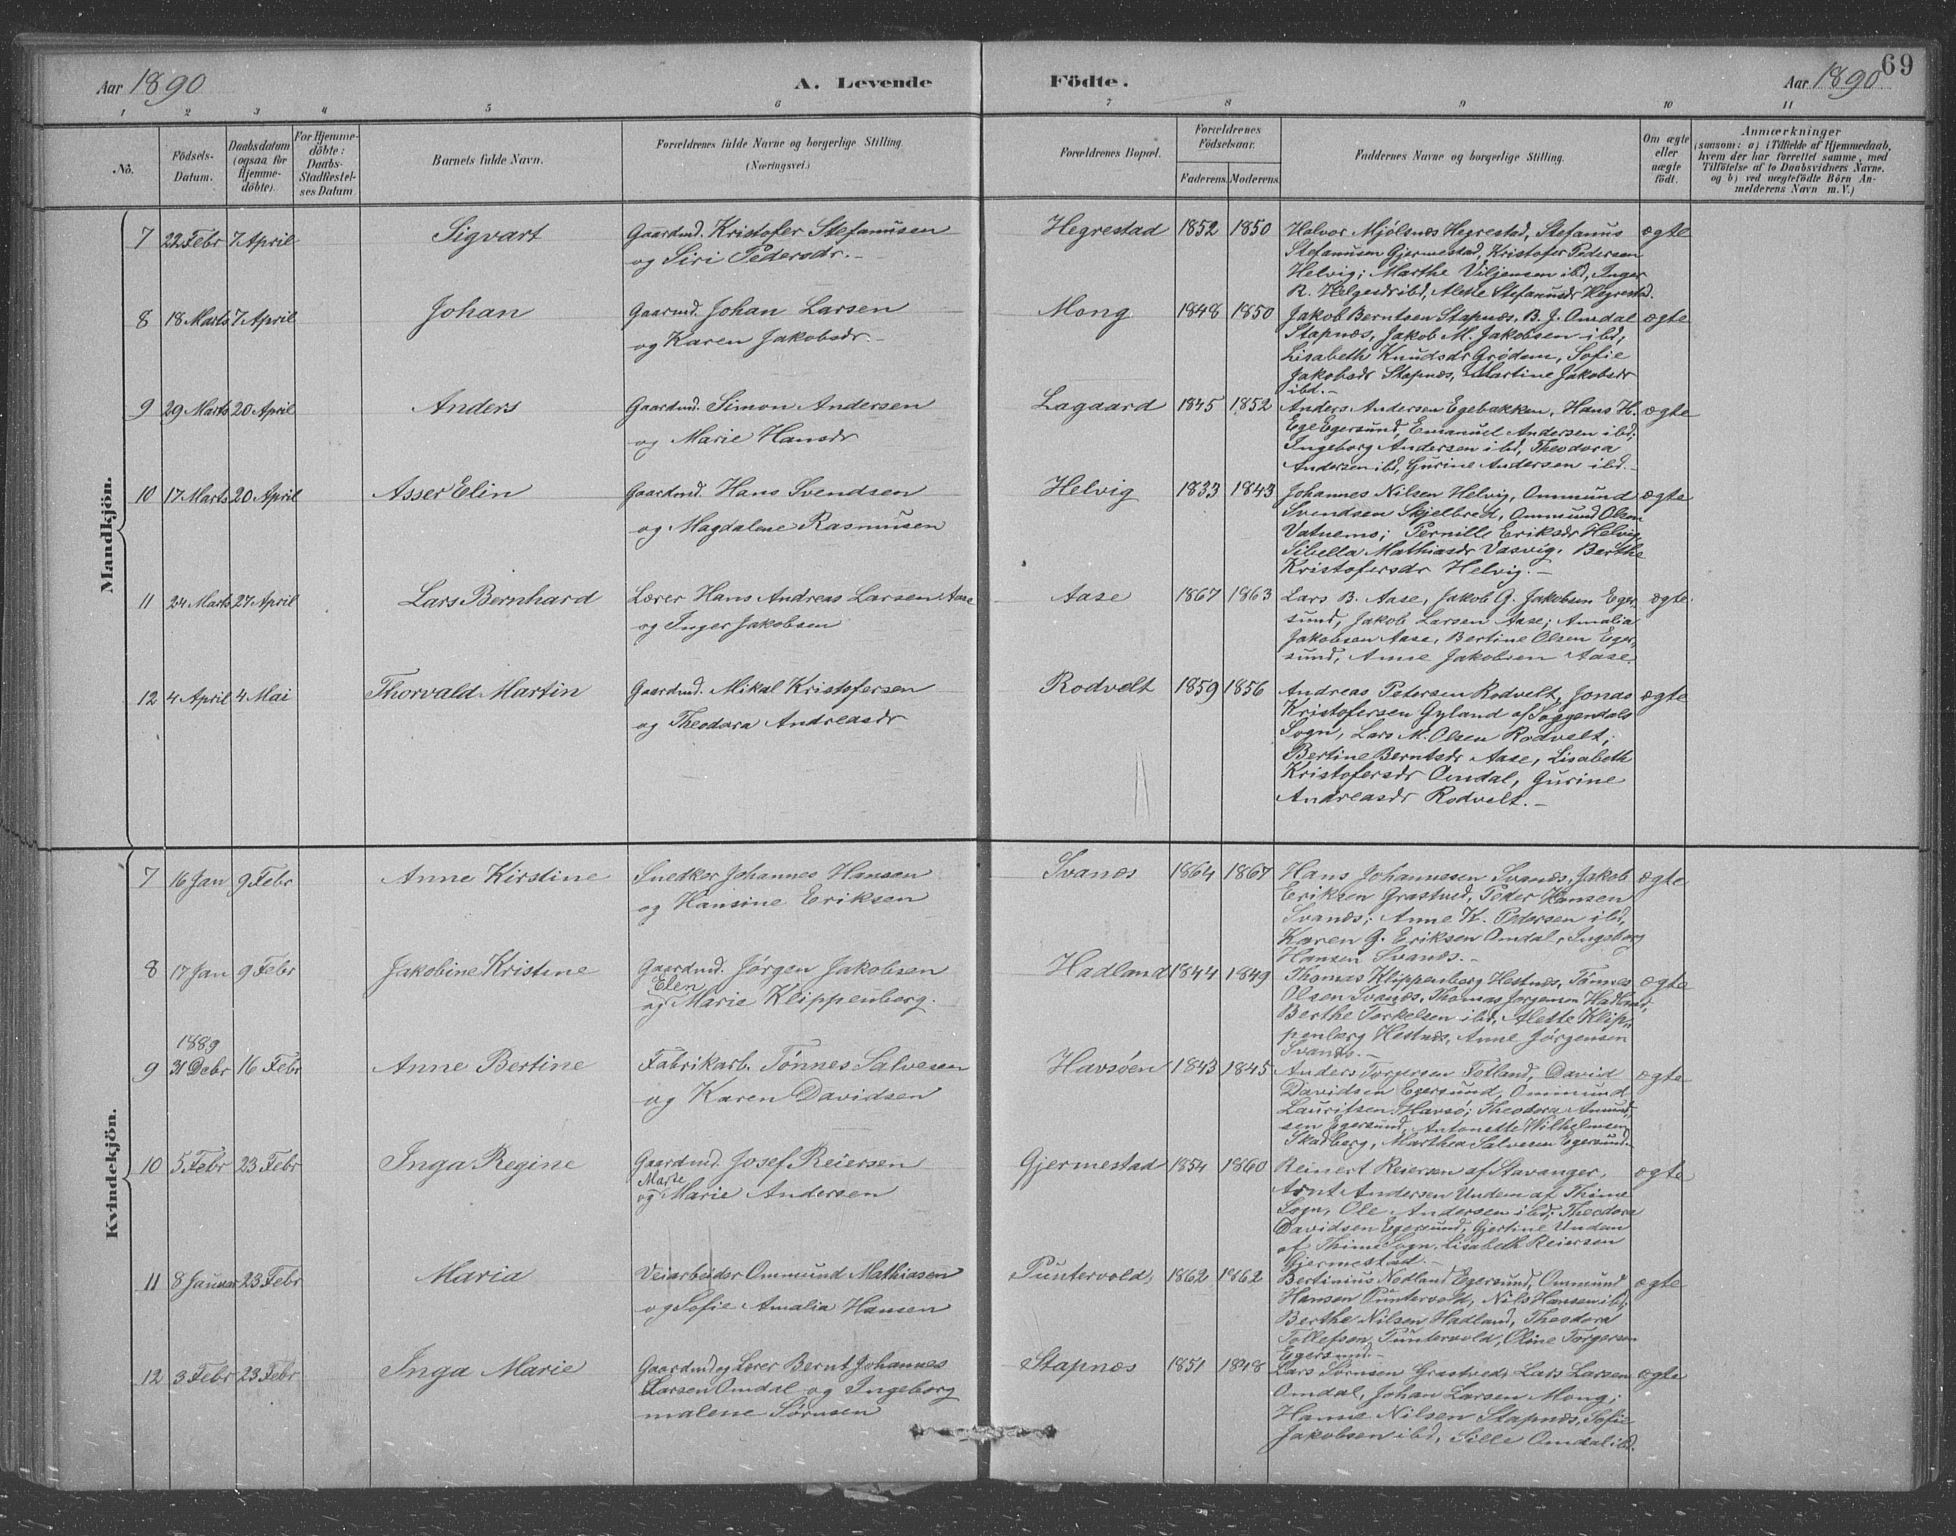 69
Aar 1890 A. Levende Födte. Aar 1890
1 2 3 4 5 6 7 8 9 10 11
No. Födsels-Datum. Daabsdatum (ogsaa for Hjemme-döbte). For Hjemme-döbte: Daabs-Stadfæstel-ses Datum Barnets fulde Navn. Forældrenes fulde Navne og borgerlige Stilling. (Næringsvei.) Forældrenes Bopæl. Forældrenes Födselsaar. Faderens. Moderens. Faddernes Navne og borgerlige Stilling. Om ægte eller uægte födt. Anmærkninger (saasom: a) i Tilfælde af Hjemmedaab, hvem der har forrettet samme, med Tilföielse af to Daabsvidners Navne. og b) ved uægtefödte Börn An-melderens Navn m. V.)
Mandkjön.
7 22 Febr 7 April Sigvart Gaardmd. Kristofer Stefanusen Hegrestad 1852 1850 Halvor Mjölsnæs Hegrestad, Stefanus ægte
og Siri Pedersdr.- Stefanusen Gjermestad, Kristofer Pedersen
Helvig; Marthe Viljensen ibd, Inger
R. Helgesdr ibd, Alette Stefanusdr Hegrestad.
8 18 Marts 7 April Johan Gaarmd. Johan Larsen Mong 1848 1850 Jakob Berntsen Stapnæs, B. J. Omdal ægte
og Karen Jakobsdr.- Stapnæs, Jakob M. Jakobsen ibd;
Lisabeth Knudsdr Grødem, Sofie
Jakobsdr Stapnæs, Martine Jakobsdr
ibd.-
9 29 Marts 20 April Anders Gaardmd. Simon Andersen Lagaard 1845 1852 Anders Andersen Egebakken, Hans H. ægte
og Marie Hansdr Ege Egersund, Emanuel Andersen ibd;
Ingeborg Andersen ibd, Theodora
Andersen ibd, Gurine Andersen ibd.-
10 17 Marts 20 April Asser Elin Gaardmd. Hans Svendsen Helvig 1833 1843 Johannes Nilsen Helvig, Ommund ægte
og Magdalene Rasmusen Svendsen Skjelbred, Ommund Olsen
Vatnemo; Pernille Eriksdr Helvig
Sibella Mathiasdr Vasvig, Berthe
Kristofersdr Helvig.-
11 24 Marts 27 April Lars Bernhard Lærer Hans Andreas Larsen Aase Aase 1867 1863 Lars B. Aase, Jakob G. Jakobsen Eger- ægte.
og Inger Jakobsen sund, Jakob Larsen Aase; Amalia
Jakobsen Aase, Bertine Olsen Eger-
sund, Anne Jakobsen Aase.
12 4 April 4 Mai Thorvald Martin Gaardmd. Mikal Kristofersen Rodvelt 1859 1856 Andreas Petersen Rodvelt, Jonas ægte
og Theodora Andreasdr Kristofersen Gyland af Soggendals
Sogn, Lars M. Olsen Rodvelt;
Bertine Berntsdr Aase, Lisabeth
Kristofersdr Omdal, Gurine
Andreasdr Rodvelt.-
Kvindekjön.
7 16 Jan 9 Febr Anne Kirstine Snedker Johannes Hansen Svanæs 1864 1867 Hans Johannesen Svanæs, Jakob ægte
og Hansine Eriksen Eriksen Grastved, Peder Hansen
Svanæs; Anne K. Pedersen ibd,
Karen G. Eriksen Omdal, Ingeborg
Hansen Svanæs.-
8 17 Jan 9 Febr Jakobine Kristine Gaardmd. Jørgen Jakobsen Hadland 1844 1849 Thomas Klippenberg Hestnæs, Tønnes ægte
Elen
og Marie Klippenberg. Olsen Svanæs, Thomas Jørgensen Hadland;
Berthe Torkelsen ibd, Alette Klip-
penberg Hestnæs, Anne Jørgensen
Svanæs.-
1889
9 31 Debr 16 Febr Anne Bertine Fabrikarb. Tønnes Salvesen Havsøen 1843 1845 Anders Torgersen Fotland, David ægte
og Karen Davidsen Davidsen Egersund, Ommund
Lauritsen Havsø; Theodora Amund-
sen Egersund, Antonette Wilhelmsen
Skadberg, Marthea Salvesen Egersund.
10 5 Febr 23 Febr Inga Regine Gaardmd. Josef Reiersen Gjermestad 1854 1860 Reinert Reiersen af Stavanger, ægte
Marte
og Marie Andersen Arnt Andersen Undem af Thime
Sogn, Ole Andersen ibd; Theodora
Davidsen Egersund, Gjertine Undem
af Thime Sogn, Lisabeth Reiersen
Gjermestad.-
11 8 Januar 23 Febr Maria Veiarbeider Ommund Mathiasen Puntervold, 1862 1862 Bertinius Nodland Egersund, Ommund ægte
og Sofie Amalia Hansen Hansen Puntervold, Nils Hansen ibd;
Berthe Nilsen Hadland, Theodora
Tollefsen, Puntervold, Oline Torgersen
Egersund.-
12 3 Febr 23 Febr Inga Marie Gaardmd og Lærer Bernt Johannes Stapnæs 1851 1848 Lars Sørnsen Grastved, Lars Larsen ægte
Larsen Omdal og Ingeborg Omdal, Johan Larsen Mong;
malene Sørnsen Hanne Nilsen Stapnæs, Sofie
Jakobsen ibd, Sille Omdal ibd.